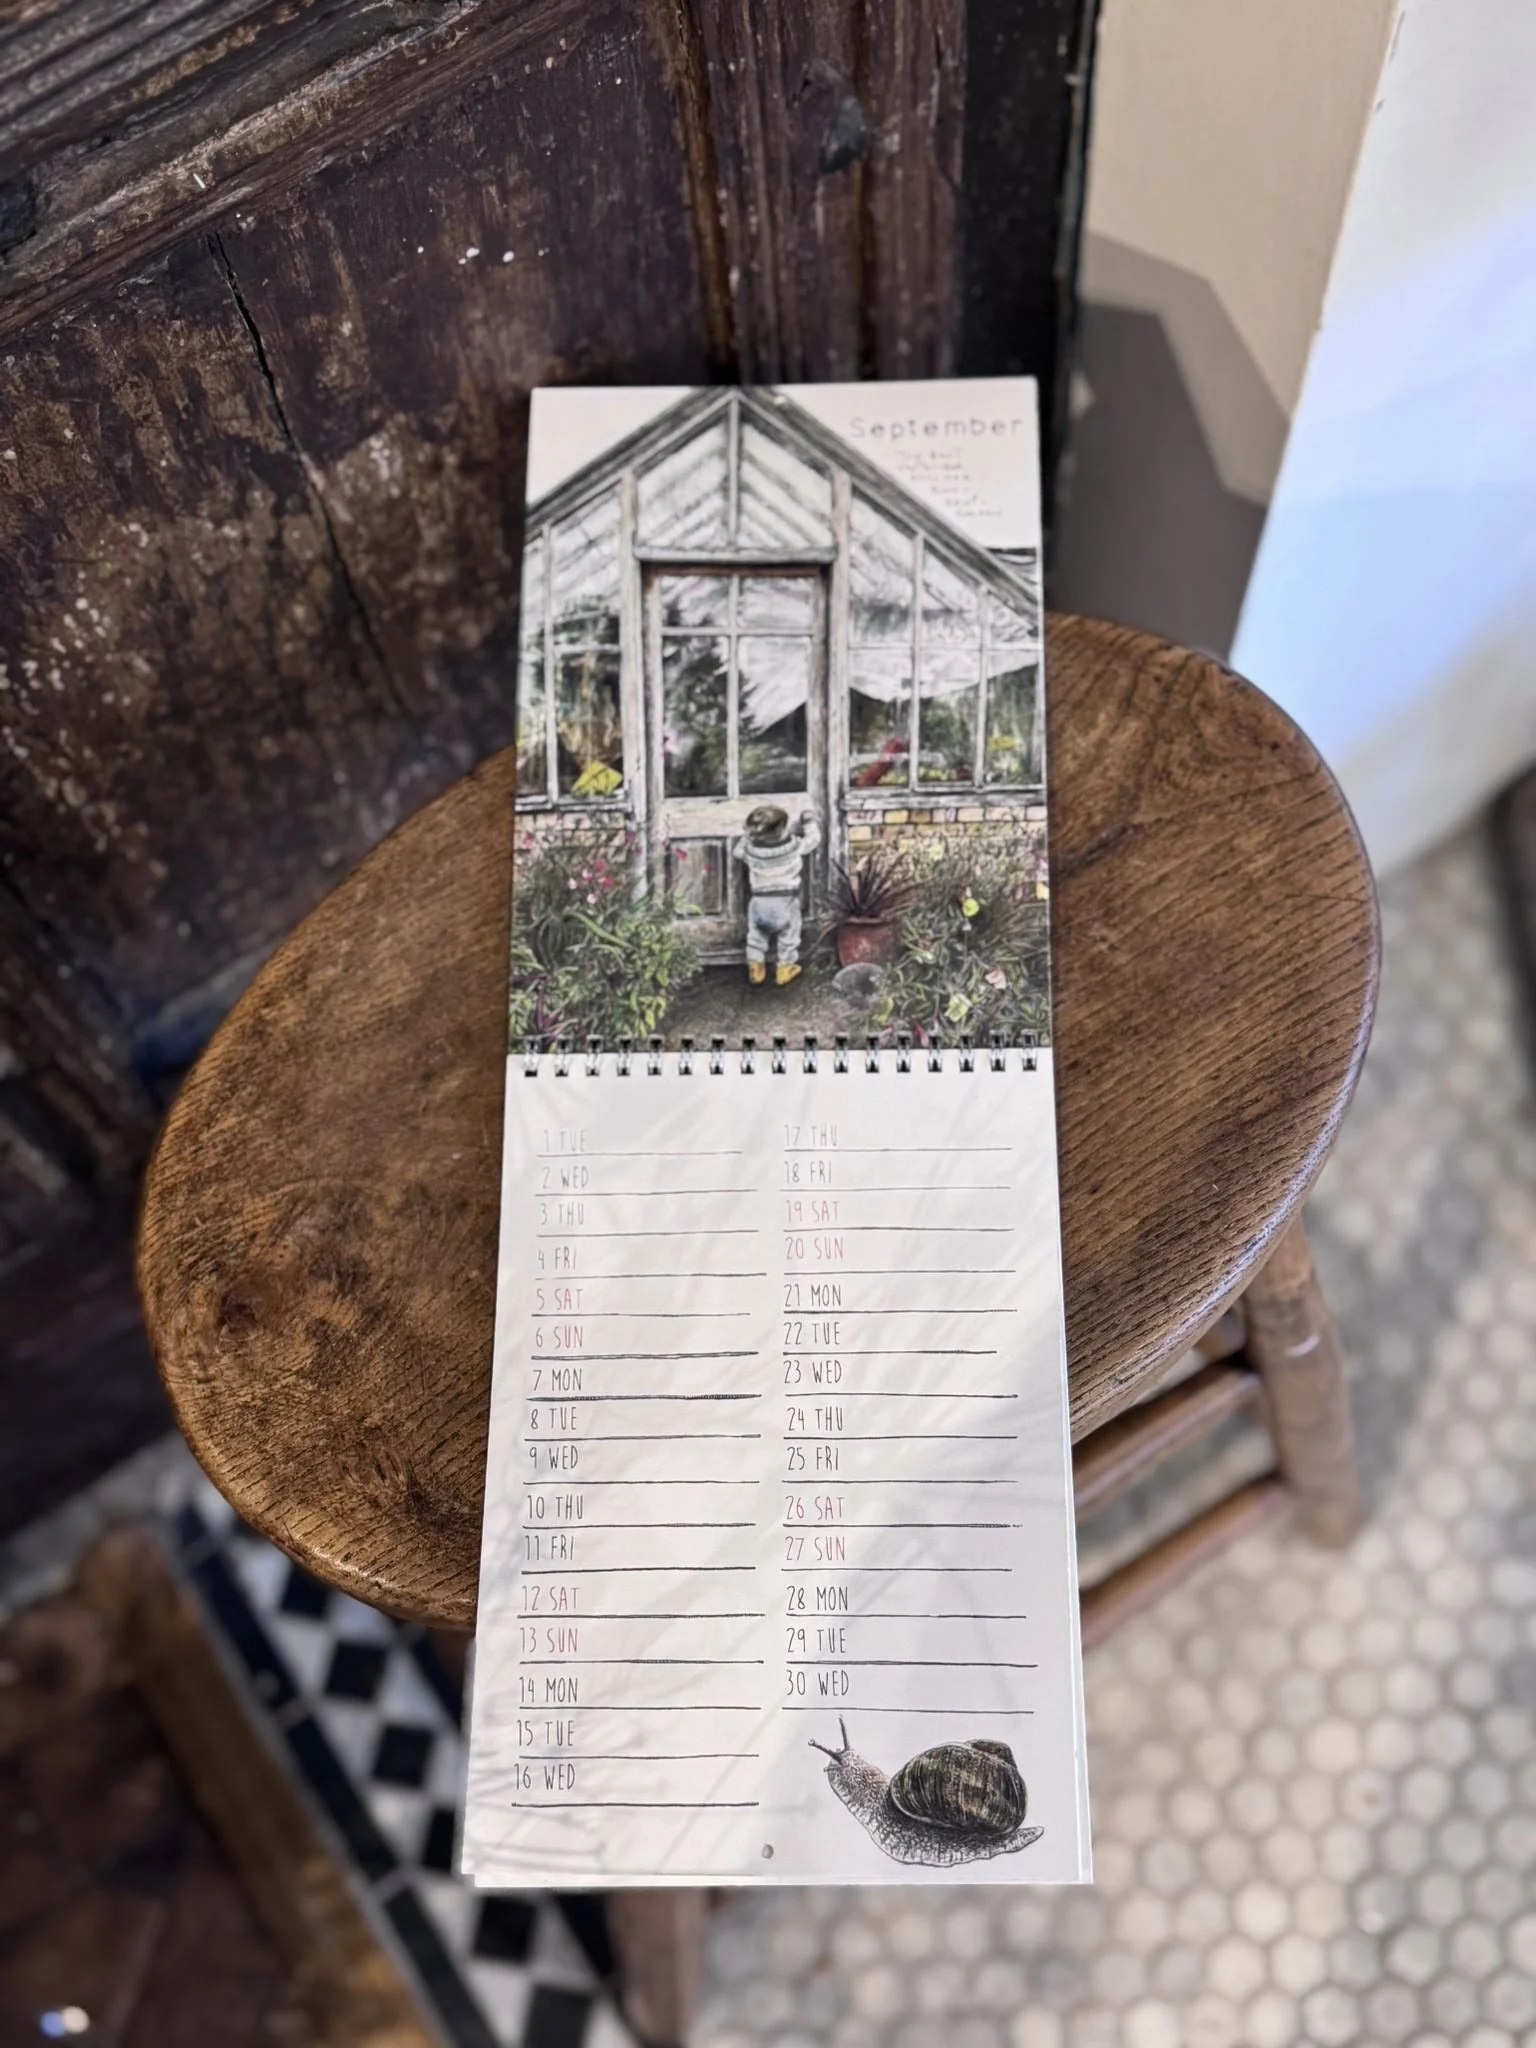 September
1 TUE
2 WED
3 THU
4 FRI
5 SAT
6 SUN
7 MON
8 TUE
9 WED
10 THU
11 FRI
12 SAT
13 SUN
14 MON
15 TUE
16 WED
17 THU
18 FRI
19 SAT
20 SUN
21 MON
22 TUE
23 WED
24 THU
25 FRI
26 SAT
27 SUN
28 MON
29 TUE
30 WED